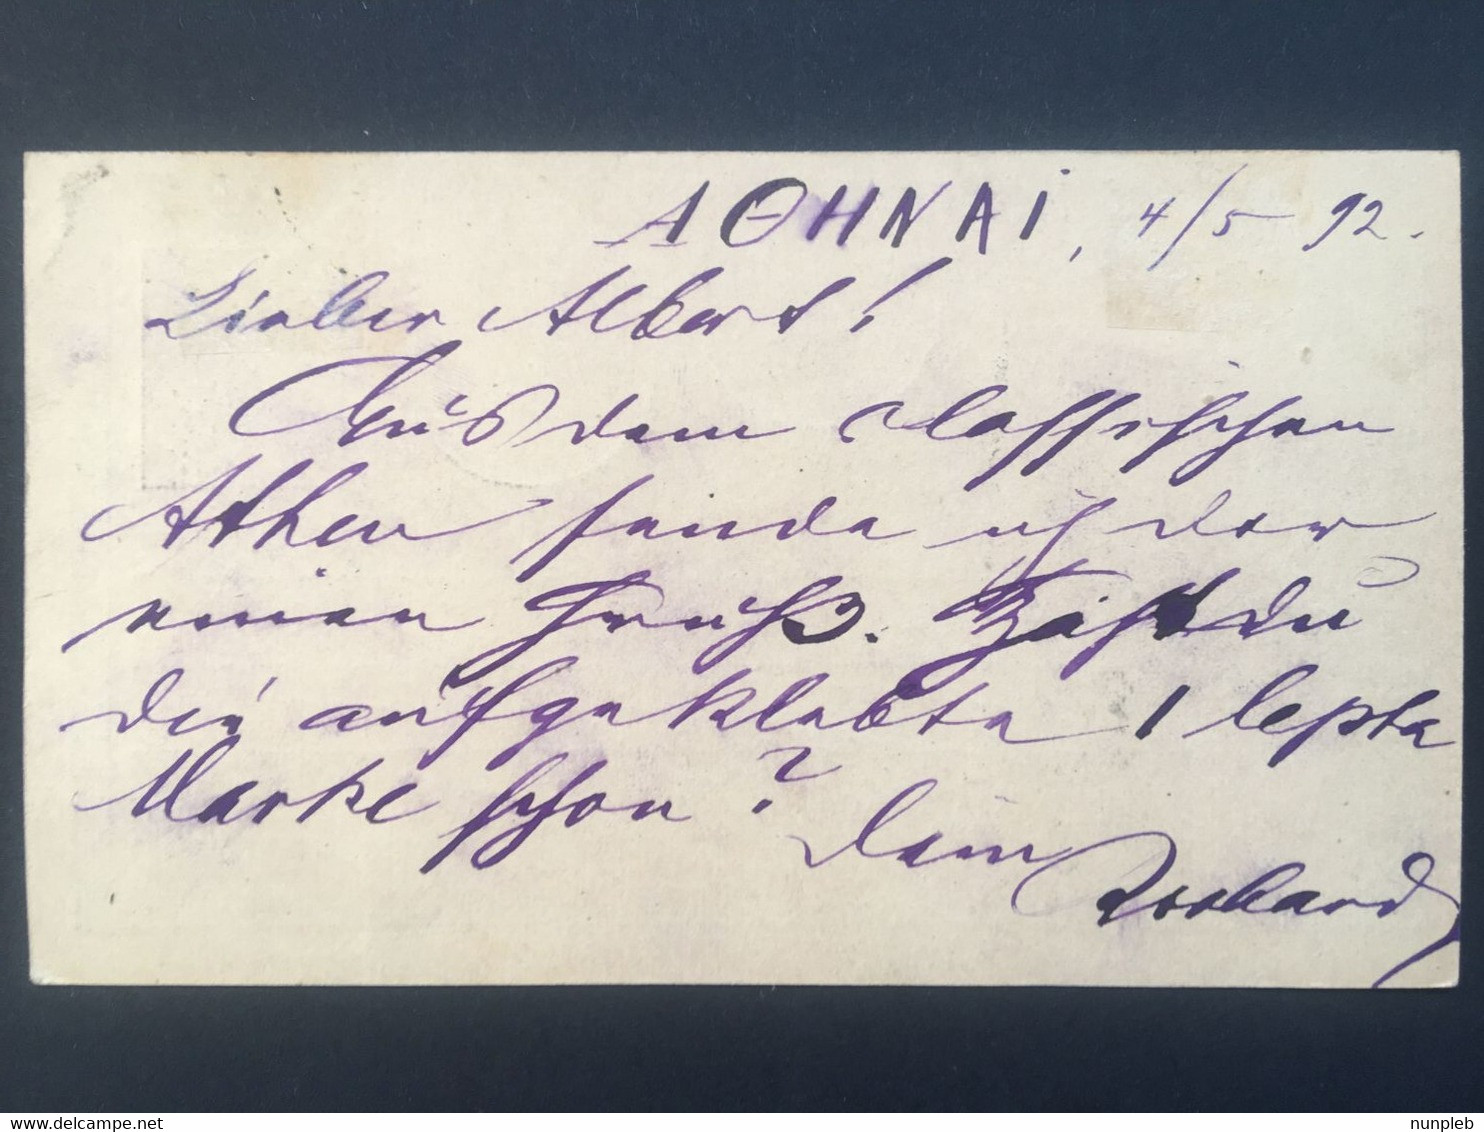 ΑΘΗΝΑΙ, 4/5 92.
Lieber Albert!
Aus dem classischen
Athen sende ich dir
einen Gruß. Hast du
die aufgeklebte 1 lepta
Marke schon?
Dein
delcampe.net
nunpleb